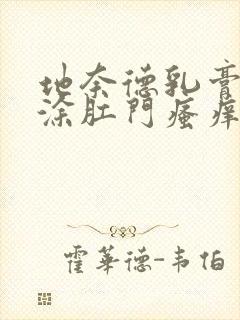 地奈德乳膏
涂肛門瘙痒
霍華德-韦伯